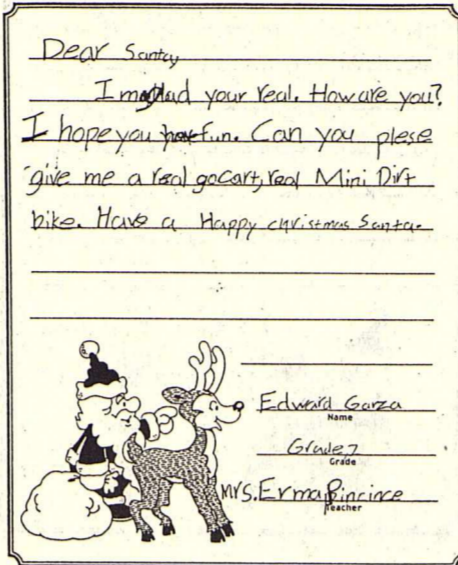 Dear Santa,
I m glad your real. How are you?
I hope you have fun. Can you plese
give me a real gocart, real Mini Dirt
bike. Have a Happy christmas Santa.
Edward Garza
Name
Grade 7
Grade
Mrs. Erma Pincince
Teacher